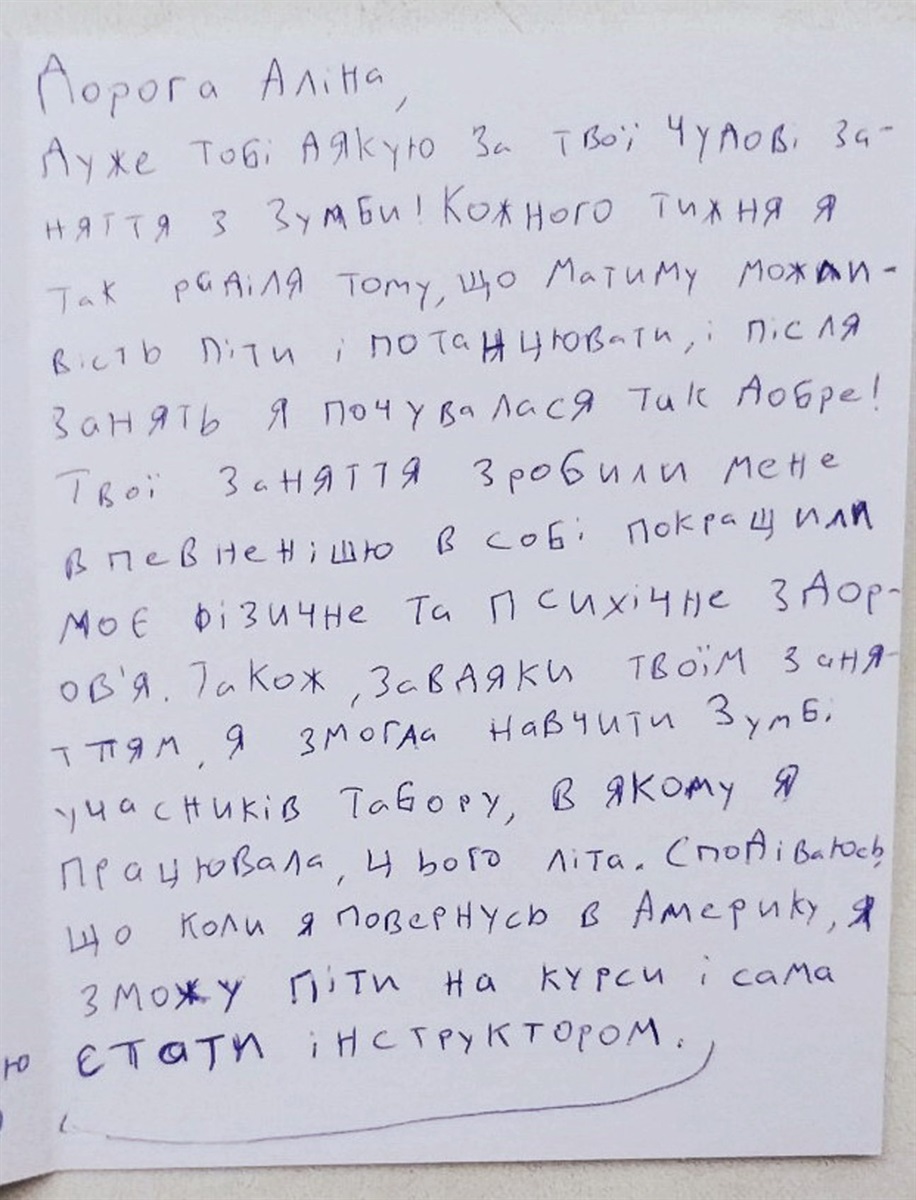 Дорога Аліна,
Дуже тобі дякую за твої чудові за-
няття з Зумби! Кожного тижня я
так раділя тому, що матиму можли-
вість піти і потанцювати, і після
занять я почувалася так добре!
Твої заняття зробили мене
впевненішю в собі покращили
моє фізичне та психічне здор-
ов'я. Також, завдяки твоїм заня-
ттям, я змогла навчити Зумбі
учасників табору, в якому я
працювала, цього літа. Сподіваюсь,
що коли я повернусь в Америку, я
зможу піти на курси і сама
стати інструктором.
ю